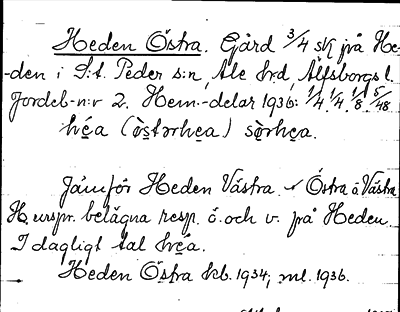 Heden Östra. Gård 3/4 sk på He-
-den i S:t. Peder s:n, Ale hrd, Älfsborgs l.
Jordeb-n:r 2. Hem.-delar 1936: 1/4. 1/4. 1/8. 5/48
hę́a (ǫ̀stərhęa) sǫ̀rhęa.
Jämför Heden Västra. Östra o Västra
H. urspr. belägna resp. ö. och v. på Heden.
I dagligt tal hę́a.
Heden Östra kb. 1934; ml. 1936.